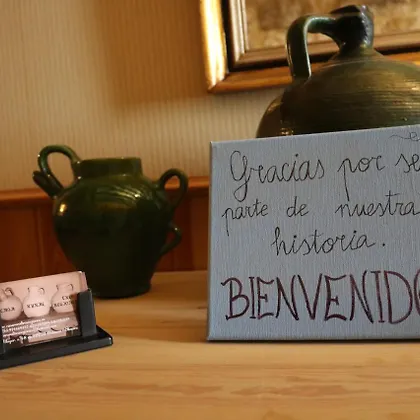 Gracias por se
parte de nuestra
historia.
BIENVENIDO